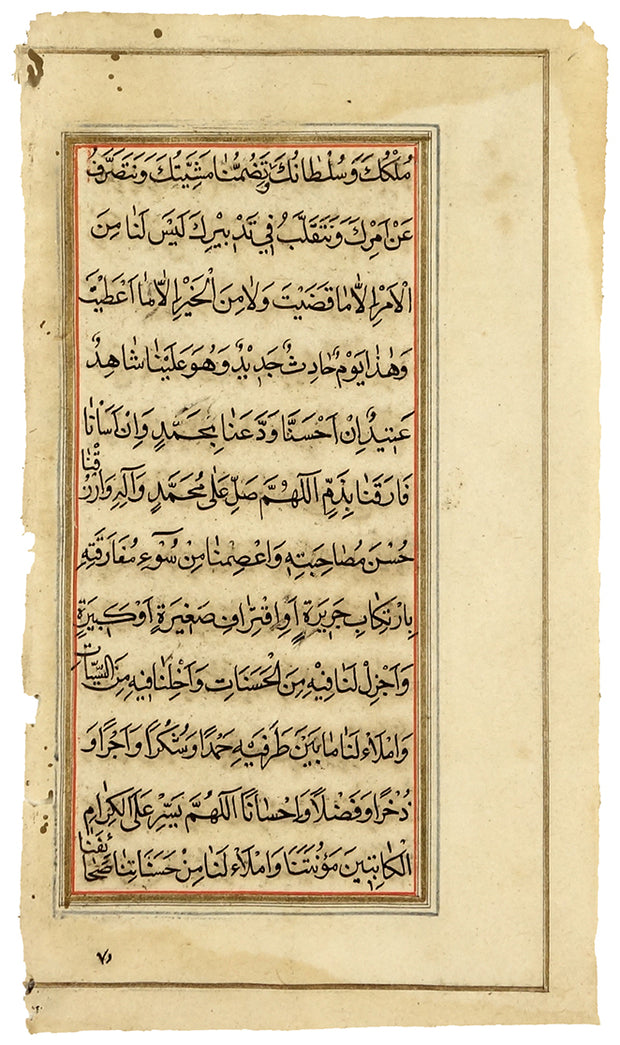 مُلْكُكَ وَسُلْطَانُكَ وَتَضُمُّنَا مَشِيَّتُكَ وَنَتَصَرَّفُ
عَنْ اَمْرِكَ وَنَتَقَلَّبُ فِي تَدْبِيرِكَ لَيْسَ لَنَا مِنَ
الْاَمْرِ اِلاَّ مَا قَضَيْتَ وَلَا مِنَ الْخَيْرِ اِلاَّ مَا اَعْطَيْتَ
وَهٰذَا يَوْمٌ حَادِثٌ جَدِيدٌ وَهُوَ عَلَيْنَا شَاهِدٌ
عَتِيدٌ اِنْ اَحْسَنَّا وَدَّعَنَا بِحَمْدٍ وَاِنْ اَسَأْنَا
فَارَقَنَا بِذَمٍّ اَللّٰهُمَّ صَلِّ عَلٰى مُحَمَّدٍ وَآلِهِ وَارْزُقْنَا
حُسْنَ مُصَاحَبَتِهِ وَاعْصِمْنَا مِنْ سُوۤءِ مُفَارَقَتِهِ
بِارْتِكَابِ جَرِيرَةٍ اَوِ اقْتِرَافِ صَغِيرَةٍ اَوْ كَبِيرَةٍ
وَاَجْزِلْ لَنَا فِيْهِ مِنَ الْحَسَنَاتِ وَاَخْلِنَا فِيْهِ مِنَ السَّيِّئَاتِ
وَامْلَاءْ لَنَا مَا بَيْنَ طَرَفَيْهِ حَمْدًا وَشُكْرًا وَاَجْرًا وَ
ذُخْرًا وَفَضْلًا وَاِحْسَانًا اَللّٰهُمَّ يَسِّرْ عَلَى الْكِرَامِ
الْكَاتِبِينَ مَؤُنَتَنَا وَامْلَاءْ لَنَا مِنْ حَسَنَاتِنَا صَحَائِفَنَا